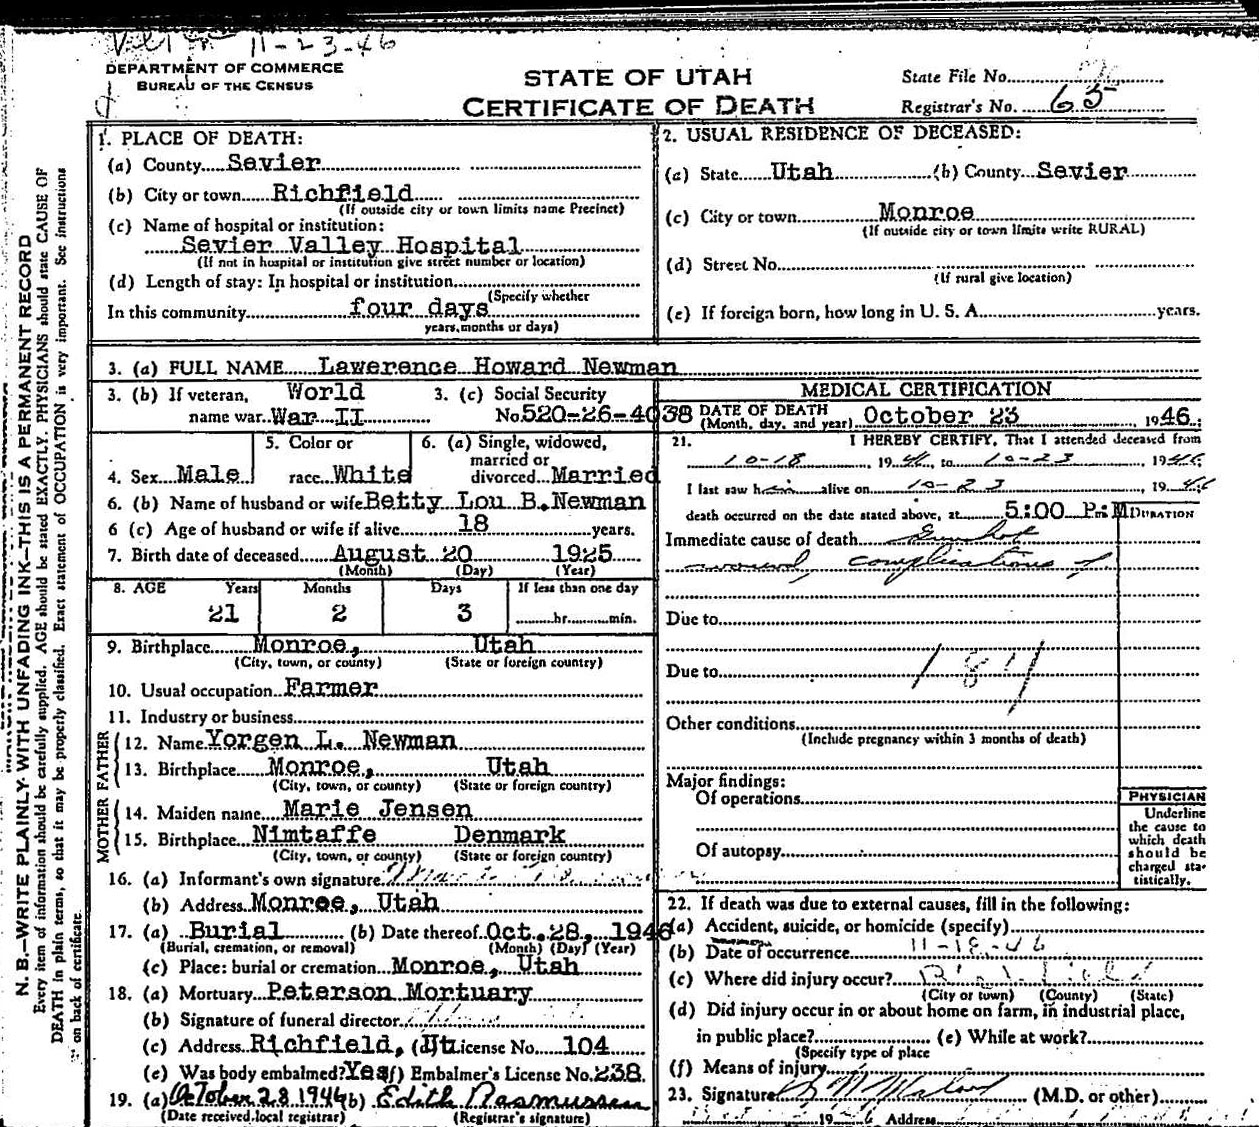 11-23-46
DEPARTMENT OF COMMERCE
BUREAU OF THE CENSUS
STATE OF UTAH
CERTIFICATE OF DEATH
State File No.
Registrar's No. 65
N. B.—WRITE PLAINLY WITH UNFADING INK—THIS IS A PERMANENT RECORD
Every item of information should be carefully supplied. AGE should be stated EXACTLY. PHYSICIANS should state CAUSE OF
DEATH in plain terms, so that it may be properly classified. Exact statement of OCCUPATION is very important. See instructions
on back of certificate.
1. PLACE OF DEATH:
(a) County Sevier
(b) City or town Richfield
(If outside city or town limits name Precinct)
(c) Name of hospital or institution:
Sevier Valley Hospital
(If not in hospital or institution give street number or location)
(d) Length of stay: In hospital or institution
(Specify whether
In this community four days
years, months or days)
2. USUAL RESIDENCE OF DECEASED:
(a) State Utah (b) County Sevier
(c) City or town Monroe
(If outside city or town limits write RURAL)
(d) Street No.
(If rural give location)
(e) If foreign born, how long in U. S. A. years.
3. (a) FULL NAME Lawerence Howard Newman
3. (b) If veteran, World
name war War II
3. (c) Social Security
No. 520-26-4038
4. Sex Male
5. Color or
race White
6. (a) Single, widowed,
married or
divorced Married
6. (b) Name of husband or wife Betty Lou B. Newman
6 (c) Age of husband or wife if alive 18 years.
7. Birth date of deceased August 20 1925
(Month) (Day) (Year)
8. AGE Years Months Days If less than one day
21 2 3 hr. min.
9. Birthplace Monroe, Utah
(City, town, or county) (State or foreign country)
10. Usual occupation Farmer
11. Industry or business
FATHER
12. Name Yorgen L. Newman
13. Birthplace Monroe, Utah
(City, town, or county) (State or foreign country)
MOTHER
14. Maiden name Marie Jensen
15. Birthplace Nimtaffe Denmark
(City, town, or county) (State or foreign country)
16. (a) Informant's own signature
(b) Address Monroe, Utah
17. (a) Burial (b) Date thereof Oct. 28, 1946
(Burial, cremation, or removal) (Month) (Day) (Year)
(c) Place: burial or cremation Monroe, Utah
18. (a) Mortuary Peterson Mortuary
(b) Signature of funeral director
(c) Address Richfield, Ut (d) License No. 104
(e) Was body embalmed? Yes (f) Embalmer's License No. 238
19. (a) October 28 1946 (b) Edith Rasmussen
(Date received local registrar) (Registrar's signature)
MEDICAL CERTIFICATION
DATE OF DEATH
(Month, day, and year) October 23, 1946
21. I HEREBY CERTIFY, That I attended deceased from
10-18, 1946, to 10-23, 1946
I last saw him alive on 10-23, 1946
death occurred on the date stated above, at 5:00 P.M
DURATION
Immediate cause of death Gunshot
wound, complications of
Due to
Due to
181
Other conditions
(Include pregnancy within 3 months of death)
Major findings:
Of operations
Of autopsy
PHYSICIAN
Underline
the cause to
which death
should be
charged sta-
tistically.
22. If death was due to external causes, fill in the following:
(a) Accident, suicide, or homicide (specify)
(b) Date of occurrence 11-18-46
(c) Where did injury occur? Richfield
(City or town) (County) (State)
(d) Did injury occur in or about home on farm, in industrial place,
in public place? (e) While at work?
(Specify type of place
(f) Means of injury
23. Signature (M.D. or other)
19 Address